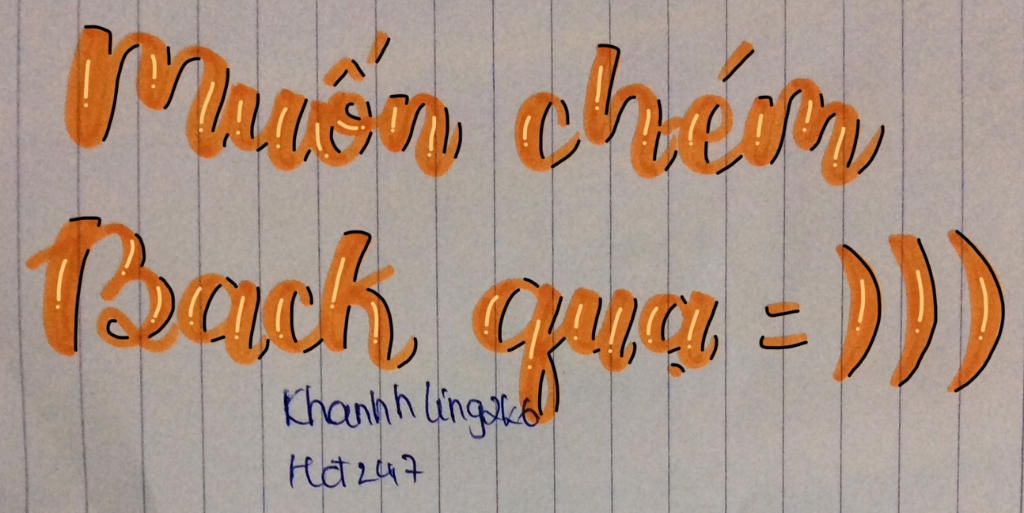 Muốn chém
Back quạ =)))
Khanhh ling2k6
Hđt247